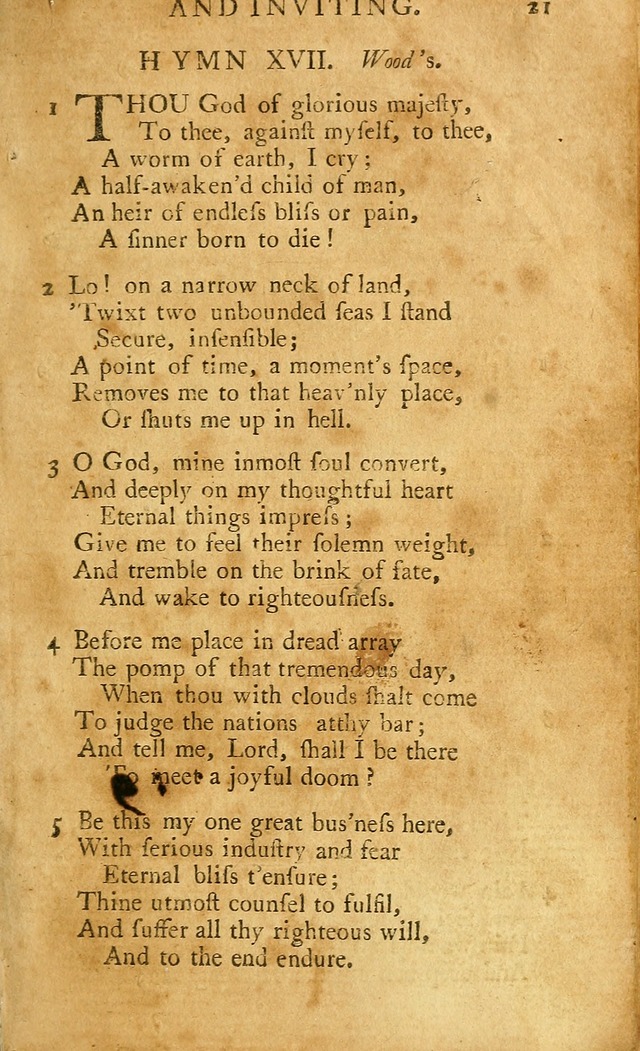 AND INVITING. 21
HYMN XVII. Wood's.
1 THOU God of glorious majeſty,
To thee, againſt myſelf, to thee,
A worm of earth, I cry;
A half-awaken'd child of man,
An heir of endleſs bliſs or pain,
A ſinner born to die!
2 Lo! on a narrow neck of land,
'Twixt two unbounded ſeas I ſtand
Secure, inſenſible;
A point of time, a moment's ſpace,
Removes me to that heav'nly place,
Or ſhuts me up in hell.
3 O God, mine inmoſt ſoul convert,
And deeply on my thoughtful heart
Eternal things impreſs;
Give me to feel their ſolemn weight,
And tremble on the brink of fate,
And wake to righteouſneſs.
4 Before me place in dread array
The pomp of that tremendous day,
When thou with clouds ſhalt come
To judge the nations atthy bar;
And tell me, Lord, ſhall I be there
To meet a joyful doom?
5 Be this my one great bus'neſs here,
With ſerious induſtry and fear
Eternal bliſs t'enſure;
Thine utmoſt counſel to fulfil,
And ſuffer all thy righteous will,
And to the end endure.